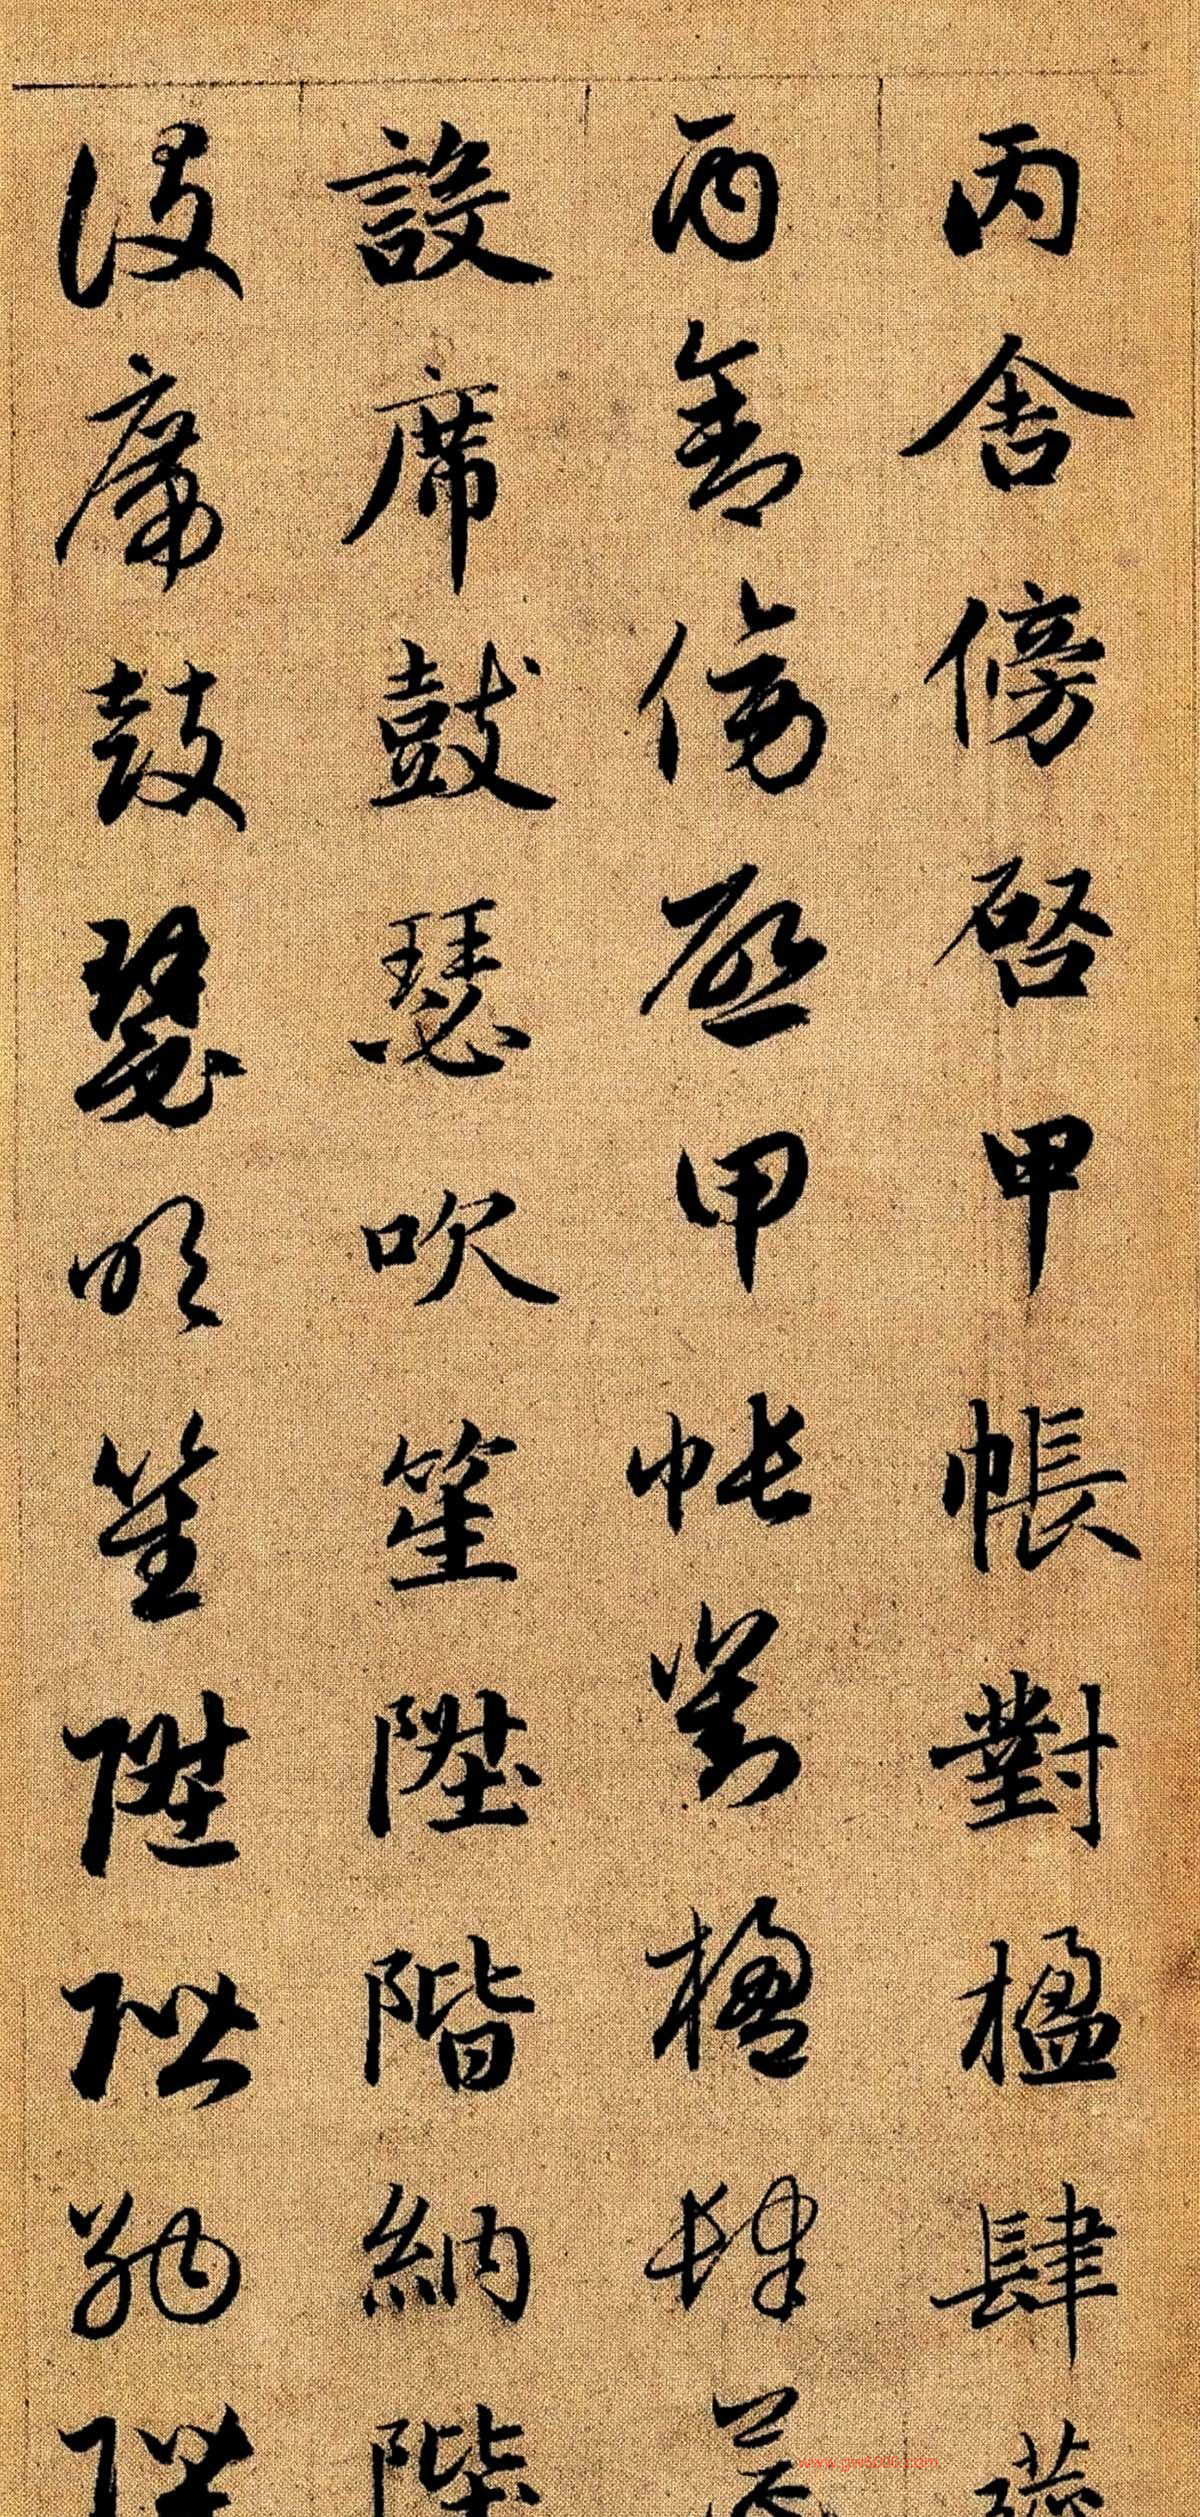 丙舍傍啓甲帳對楹肆
丙舍傍啓甲帳對楹肆
設席鼓瑟吹笙陞階納階
設席鼓瑟吹笙陞階納階
www.gw5000.com